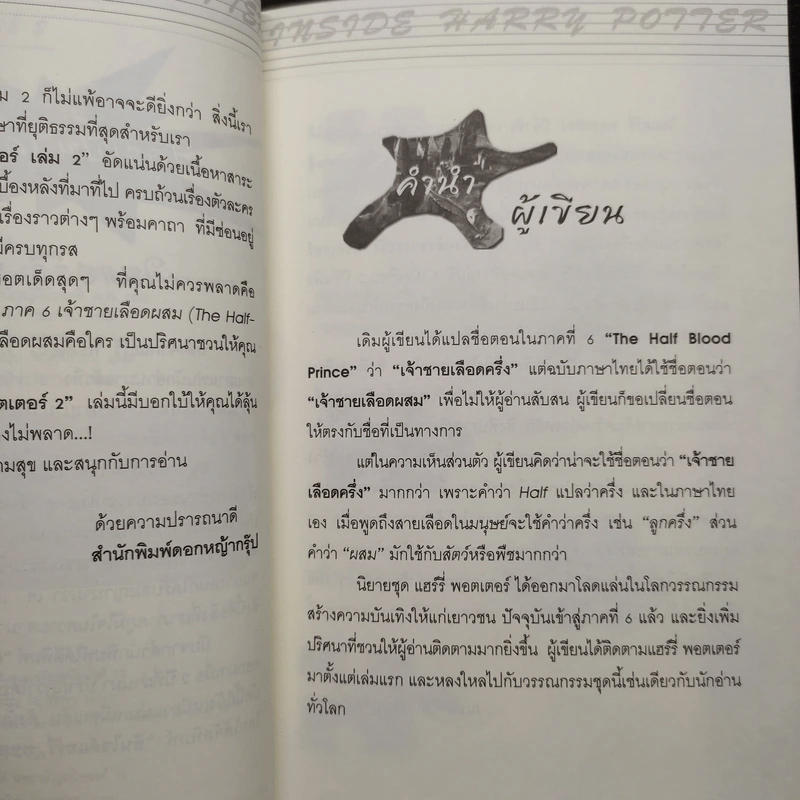 INSIDE HARRY POTTER
ม 2 ก็ไม่แพ้อาจจะดียิ่งกว่า สิ่งนี้เรา
ษาที่ยุติธรรมที่สุดสำหรับเรา
อร์ เล่ม 2” อัดแน่นด้วยเนื้อหาสาระ
บื้องหลังที่มาที่ไป ครบถ้วนเรื่องตัวละคร
เรื่องราวต่างๆ พร้อมคาถา ที่มีซ่อนอยู่
มีครบทุกรส
ชอตเด็ดสุดๆ ที่คุณไม่ควรพลาดคือ
ภาค 6 เจ้าชายเลือดผสม (The Half-
ลือดผสมคือใคร เป็นปริศนาชวนให้คุณ
ตเตอร์ 2” เล่มนี้มีบอกใบ้ให้คุณได้ลุ้น
งไม่พลาด...!
ามสุข และสนุกกับการอ่าน
ด้วยความปรารถนาดี
สำนักพิมพ์ดอกหญ้ากรุ๊ป
คำนำ
ผู้เขียน
เดิมผู้เขียนได้แปลชื่อตอนในภาคที่ 6 “The Half Blood
Prince” ว่า “เจ้าชายเลือดครึ่ง” แต่ฉบับภาษาไทยได้ใช้ชื่อตอนว่า
“เจ้าชายเลือดผสม” เพื่อไม่ให้ผู้อ่านสับสน ผู้เขียนก็ขอเปลี่ยนชื่อตอน
ให้ตรงกับชื่อที่เป็นทางการ
แต่ในความเห็นส่วนตัว ผู้เขียนคิดว่าน่าจะใช้ชื่อตอนว่า “เจ้าชาย
เลือดครึ่ง” มากกว่า เพราะคำว่า Half แปลว่าครึ่ง และในภาษาไทย
เอง เมื่อพูดถึงสายเลือดในมนุษย์จะใช้คำว่าครึ่ง เช่น “ลูกครึ่ง” ส่วน
คำว่า “ผสม” มักใช้กับสัตว์หรือพืชมากกว่า
นิยายชุด แฮร์รี่ พอตเตอร์ ได้ออกมาโลดแล่นในโลกวรรณกรรม
สร้างความบันเทิงให้แก่เยาวชน ปัจจุบันเข้าสู่ภาคที่ 6 แล้ว และยิ่งเพิ่ม
ปริศนาที่ชวนให้ผู้อ่านติดตามมากยิ่งขึ้น ผู้เขียนได้ติดตามแฮร์รี่ พอตเตอร์
มาตั้งแต่เล่มแรก และหลงใหลไปกับวรรณกรรมชุดนี้เช่นเดียวกับนักอ่าน
ทั่วโลก